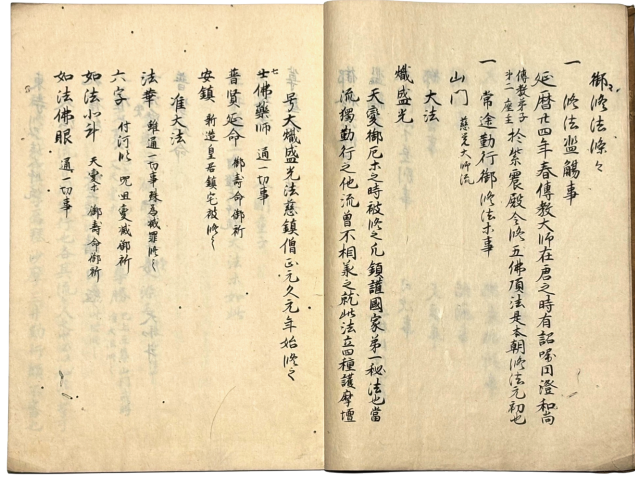 御修法條々
一 修法濫觴事
延暦廿四年春傳教大師在唐之時有詔嘱円澄和尚
傳教弟子
第二座主
於紫震殿令修五佛頂法是本朝修法元初也
一 常途勤行御修法等事
山門 慈覚大師流
大法
熾盛光
天変御厄等之時被修之凡鎮護國家第一秘法也當
流独勤行之他流曾不相承之就此法立四種護摩壇
号大熾盛光法慈鎮僧正元久元年始修之
七佛藥師 通一切事
普賢延命 御壽命御祈
安鎮 新造皇居鎮宅被修之
准大法
法華 雖通一切事殊為滅罪修之
六字 付河臨 呪咀変滅御祈
如法北斗 天変等 御壽命御祈
如法佛眼 通一切事